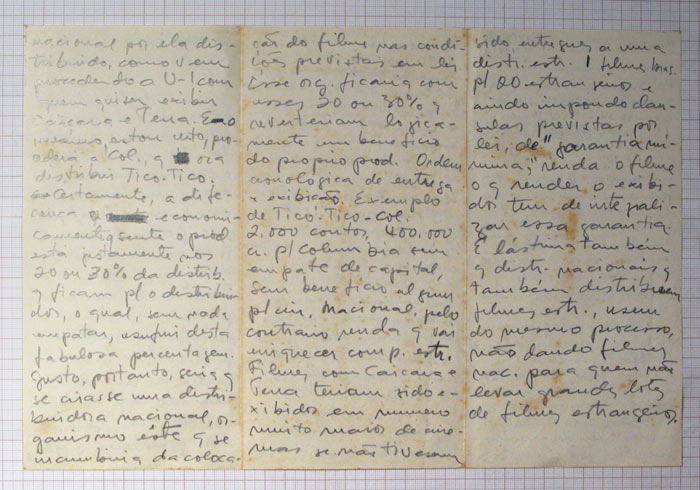 nacional por ela dis-
tribuido, como vem
procedendo a U-I com
quem quiser exibir
Caiçara e Terra. E o
mesmo, estou certo, pro-
cederá a Col., q ora
distribui Tico-Tico.
Certamente, a dife-
rença economi-
camente q sente o prod.
está justamente nos
20 ou 30% da distrib.
q ficam p/ o distribui
dor, o qual, sem nada
empatar, usufrui desta
fabulosa percentagem.
Justo, portanto, seria q
se criasse uma distri-
buidora nacional, or-
ganismo êste q se
incumbiria da coloca-
ção do filme nas condi-
ções previstas em lei.
Êsse org. ficaria com
esses 20 ou 30% q
reverteriam logica-
mente em beneficio
do proprio prod. Ordem
cronologica de entrega
e exibição. Exemplo
de Tico-Tico-Col.
2.000 contos, 400.000
cr. p/ Columbia sem
empate de capital,
sem beneficio algum
p/ cin. Nacional, pelo
contrario renda q vai
enriquecer comp. estr.
Filmes com Caiçara e
Terra teriam sido e-
xibidos em numero
muito maior de cine-
mas se não tivessem
sido entregues a uma
distr. estr. 1 filme bras.
p/ 20 estrangeiros e
ainda impondo clau-
sulas previstas por
lei, de "garantia mi-
nima," renda o filme
o q render o exibi-
dor tem de integrali-
zar essa garantia.
É lástima também
q distr. nacionais q
também distribuem
filmes estr., usem
do mesmo processo,
não dando filmes
nac. para quem não
levar grandes lotes
de filmes estrangeiros.